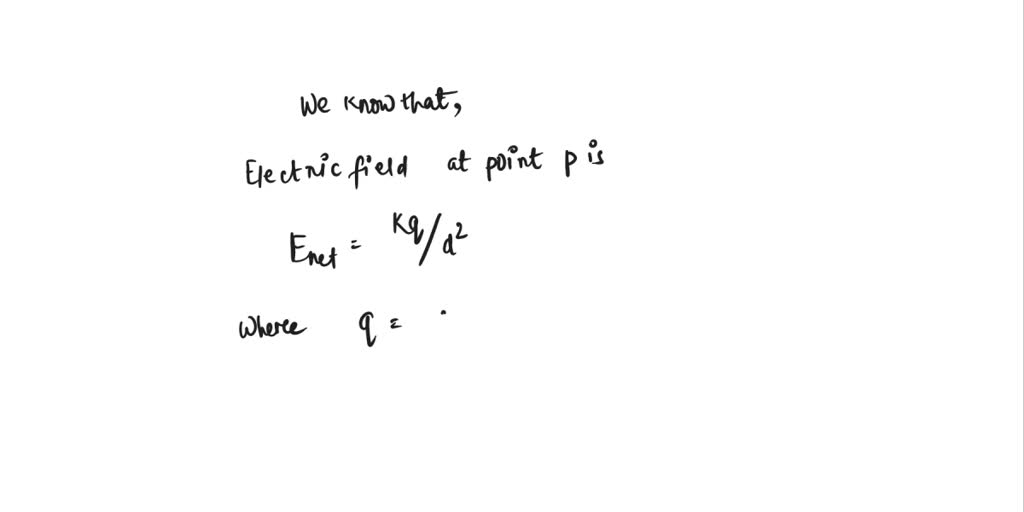 We know that,
Electric field at point p is
Enet = Kq/d²
Wheree q =